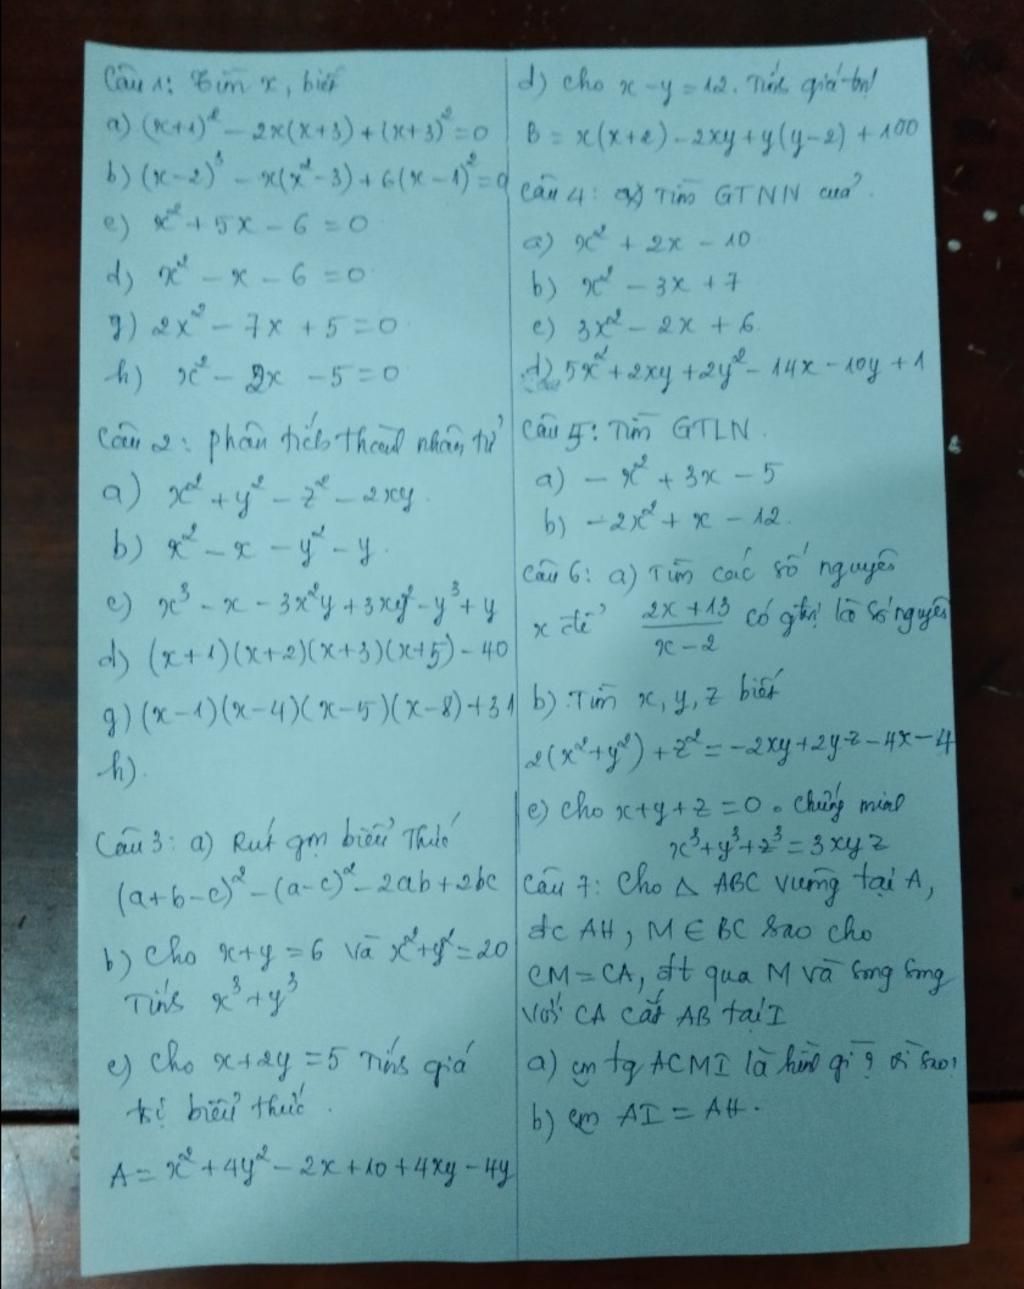 Câu 1: Tìm x, biết
a) (x+1)² - 2x(x+3) + (x+3)² = 0
b) (x-2)³ - x(x²-3) + 6(x-1)² = 0
c) x² + 5x - 6 = 0
d) x² - x - 6 = 0
g) 2x² - 7x + 5 = 0
h) x² - 2x - 5 = 0
Câu 2: phân tích thành nhân tử
a) x² + y² - z² - 2xy.
b) x² - x - y² - y.
c) x³ - x - 3x²y + 3xy² - y³ + y
d) (x+1)(x+2)(x+3)(x+5) - 40
g) (x-1)(x-4)(x-5)(x-8) + 31
h).
Câu 3: a) Rút gọn biểu thức
(a+b-c)² - (a-c)² - 2ab + 2bc
b) Cho x+y = 6 và x²+y² = 20
Tính x³+y³
c) Cho x+2y = 5 Tính giá
trị biểu thức.
A = x² + 4y² - 2x + 10 + 4xy - 4y
d) Cho x-y = 12. Tính giá trị
B = x(x+2) - 2xy + y(y-2) + 100
Câu 4: Tìm GTNN của.
a) x² + 2x - 10
b) x² - 3x + 7
c) 3x² - 2x + 6.
d) 5x² + 2xy + 2y² - 14x - 10y + 1
Câu 5: Tìm GTLN.
a) -x² + 3x - 5
b) -2x² + x - 12.
Câu 6: a) Tìm các số nguyên
x để (2x+13)/(x-2) có gtrị là số nguyên
b) Tìm x, y, z biết
2(x²+y²) + z² = -2xy + 2yz - 4x - 4
c) Cho x+y+z = 0. Chứng minh
x³+y³+z³ = 3xyz
Câu 7: Cho Δ ABC vuông tại A,
đc AH, M ∈ BC sao cho
CM = CA, đt qua M và song song
với CA cắt AB tại I
a) cm tg ACMI là hình gì? vì sao?
b) cm AI = AH.